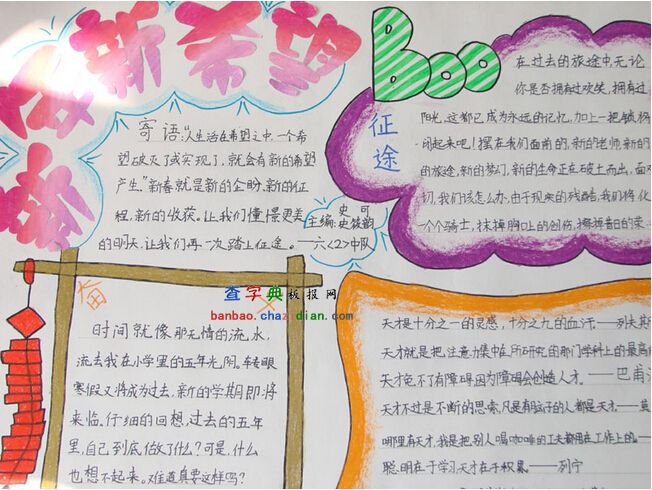 新希望
寄语:"人生活在希望之中,一个希
望破灭了或实现了,就会有新的希望
产生。"新春就是新的企盼,新的征
程,新的收获。让我们憧憬更美
的明天,让我们再一次踏上征途。——六<2>中队
主编:史可
史筱韵
Boo
征途
在过去的旅途中,无论
你是否拥有过欢笑,拥有过
阳光,这都已成为永远的记忆,加上一把锁将
闭起来吧!摆在我们面前的,新的老师,新的
的旅途,新的梦幻,新的生命正在破土而出,面对
切,我们该怎么办,由于现实的残酷,我们将化
一个个骑士,抹掉胸口上的创伤,擦掉昔日的荣
查字典板报网
banbao.chazidian.com
奋
时间就像那无情的流水,
流去我在小学里的五年光阴。转眼
寒假又将成为过去,新的学期即将
来临。仔细的回想,过去的五年
里,自己到底做了什么?可是,什么
也想不起来。难道真要这样吗?
天才是十分之一的灵感,十分之九的血汗。——列夫托
天才就是把注意力集中在所研究的那门学科上的最高
天才免不了有障碍,因为障碍会创造人才。——巴甫
天才不过是不断的思索,凡是有脑子的人都是天才。——莫
哪里有天才,我是把别人喝咖啡的工夫都用在工作上的。
聪明在于学习,天才在于积累。——列宁